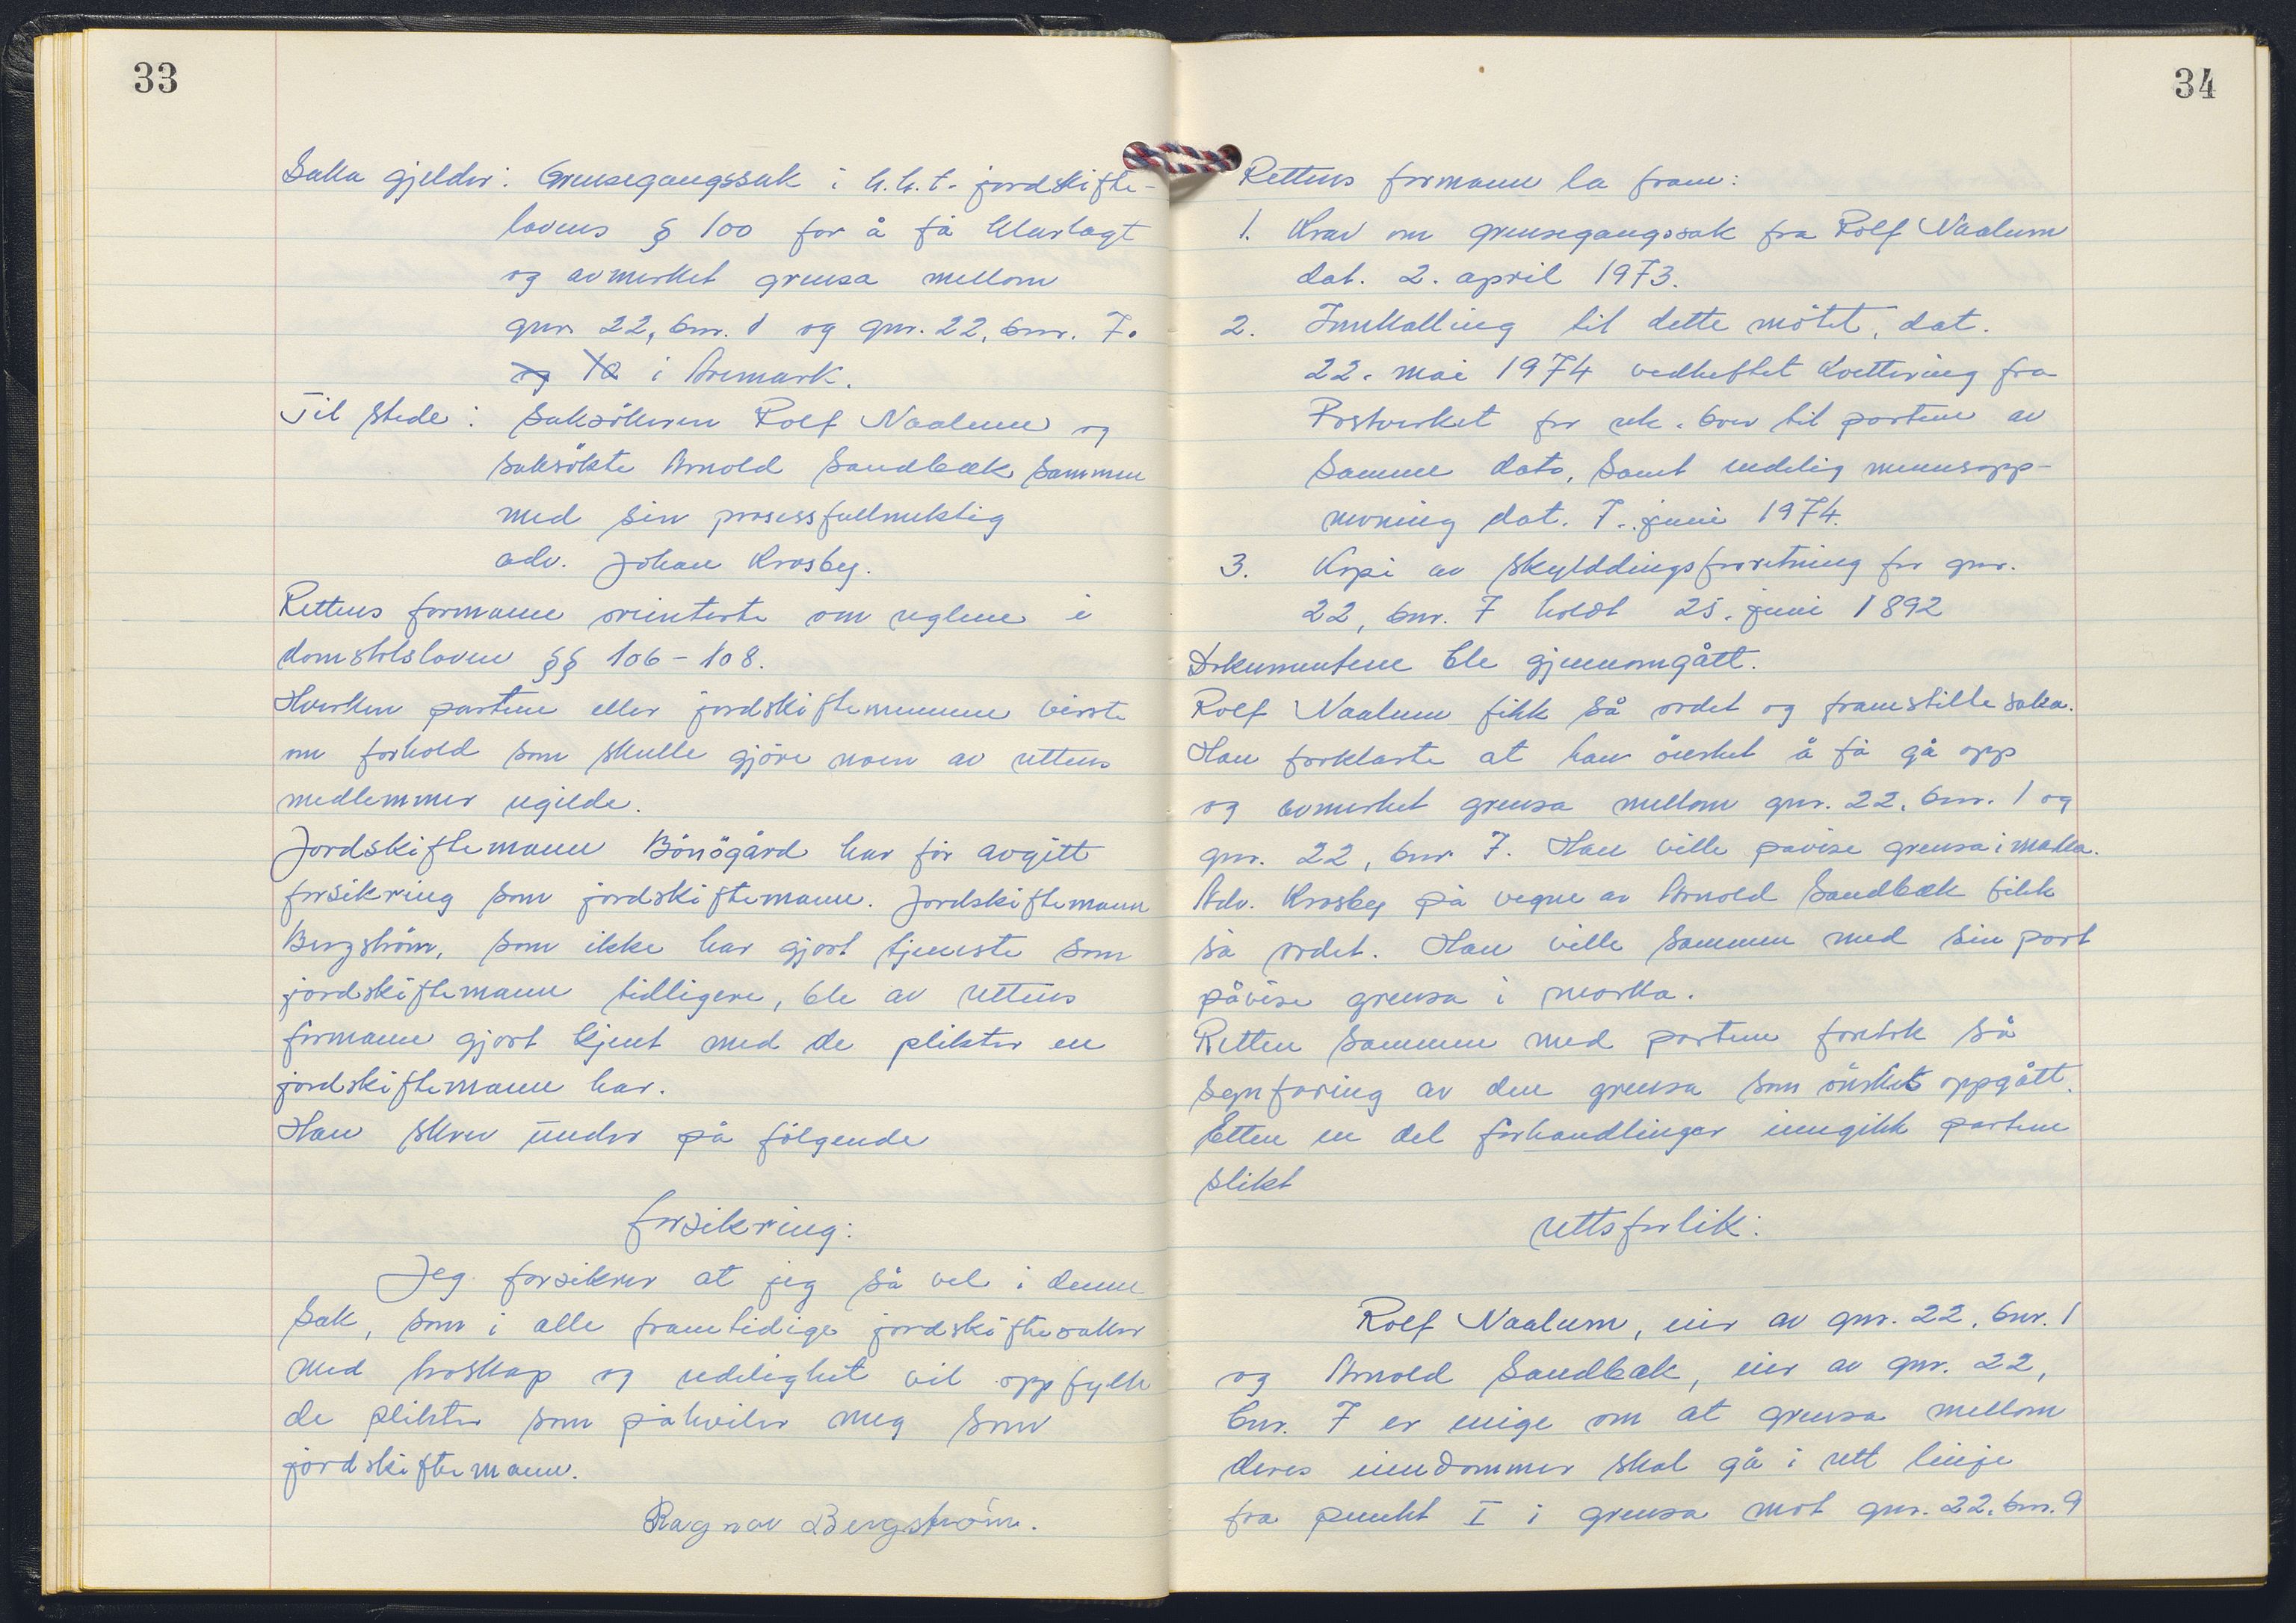 33
Saka gjelder: Grensegangssak i h.h.t. jordskifte-
lovens § 100 for å få klarlagt
og avmerket grensa mellom
gnr. 22, bnr. 1 og gnr. 22, bnr. 7.
og 10 i Aremark.
Til stede: Saksökeren Rolf Naalum og
saksökte Arnold Sandbæk sammen
med sin prosessfullmektig
adv. Johan Krosby.
Rettens formann orienterte om reglene i
domstolsloven §§ 106-108.
Hverken partene eller jordskiftemennene visste
om forhold som skulle gjöre noen av rettens
medlemmer ugilde.
Jordskiftemann Bönögård har för avgitt
forsikring som jordskiftemann. Jordskiftemann
Bergström, som ikke har gjort tjeneste som
jordskiftemann tidligere, ble av rettens
formann gjort kjent med de plikter en
jordskiftemann har.
Han skrev under på fölgende
forsikring:
Jeg forsikrer at jeg så vel i denne
sak, som i alle framtidige jordskiftesaker
med troskap og redelighet vil oppfylle
de plikter som påhviler meg som
jordskiftemann.
Ragnar Bergström.
34
Rettens formann la fram:
1. Krav om grensegangssak fra Rolf Naalum
dat. 2. april 1973.
2. Innkalling til dette mötet, dat.
22. mai 1974 vedheftet kvittering fra
Postverket for rek. brev til partene av
samme dato, samt endelig mennsopp-
nevning dat. 7. juni 1974.
3. Kopi av skylddelingsforretning for gnr.
22, bnr. 7 holdt 25. juni 1892
Dokumentene ble gjennomgått.
Rolf Naalum fikk så ordet og framstille saka.
Han forklarte at han önsket å få gå opp
og avmerket grensa mellom gnr. 22, bnr. 1 og
gnr. 22, bnr. 7. Han ville påvise grensa i marka.
Adv. Krosby på vegne av Arnold Sandbæk fikk
så ordet. Han ville sammen med sin part
påvise grensa i marka.
Retten sammen med partene foretok så
synfaring av den grensa som önskes oppgått.
Etter en del forhandlinger inngikk partene
slikt
rettsforlik:
Rolf Naalum, eier av gnr. 22, bnr. 1
og Arnold Sandbæk, eier av gnr. 22,
bnr. 7 er enige om at grensa mellom
deres eiendommer skal gå i rett linje
fra punkt I i grensa mot gnr. 22, bnr. 9